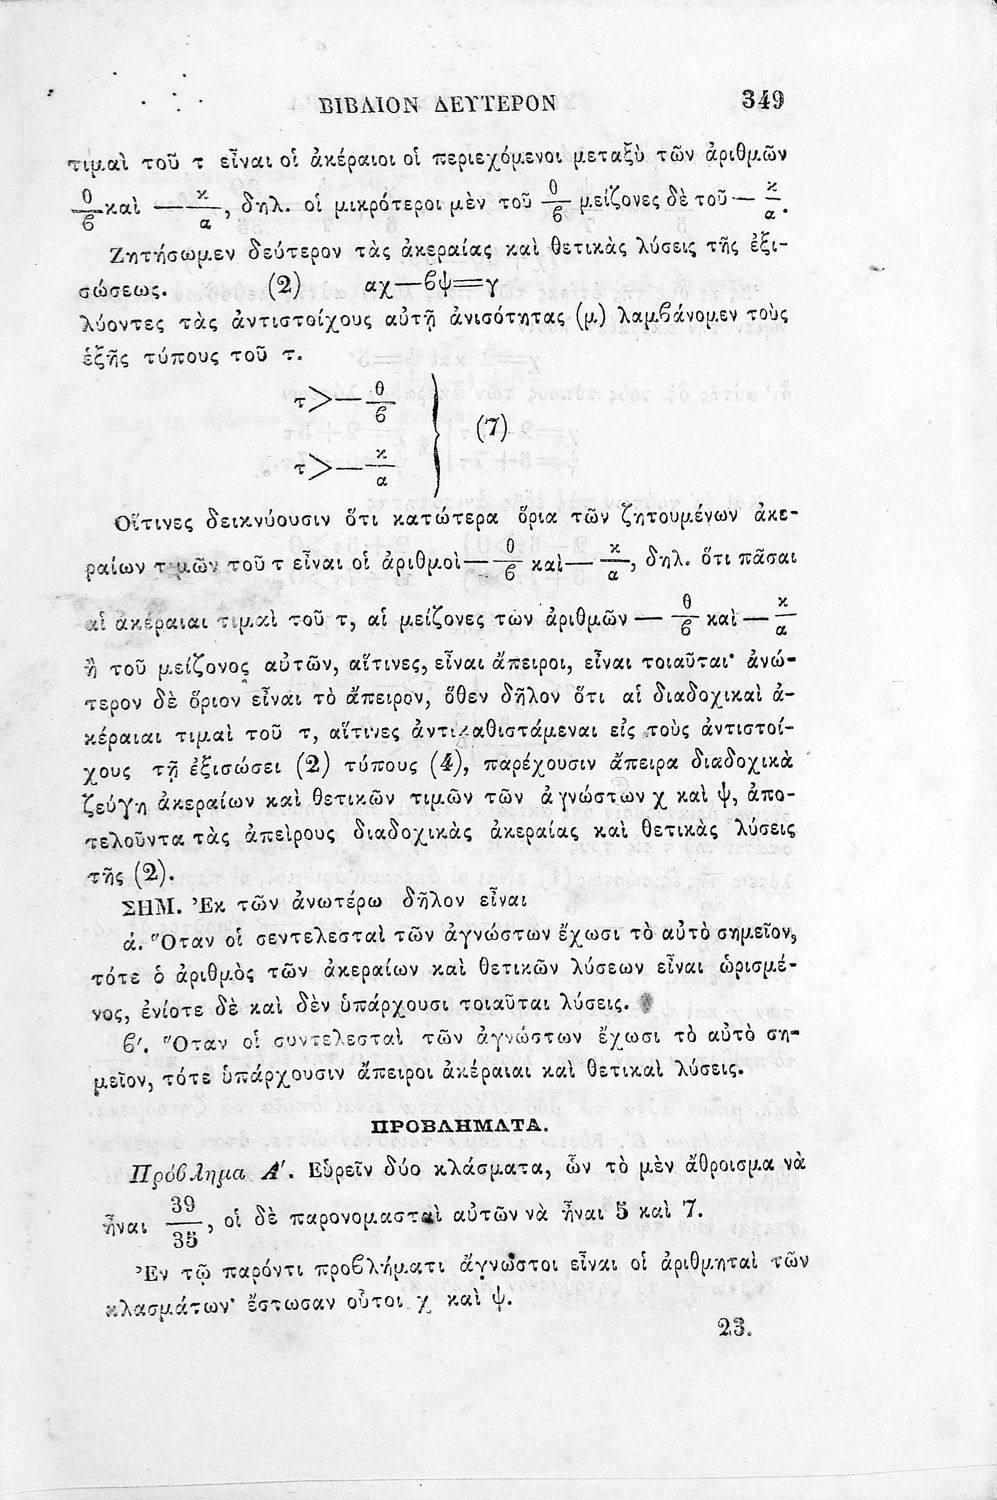 ΒΙΒΛΙΟΝ ΔΕΥΤΕΡΟΝ 349
τιμαὶ τοῦ τ εἶναι οἱ ἀκέραιοι οἱ περιεχόμενοι μεταξὺ τῶν ἀριθμῶν
θ/ϐ καὶ — κ/α, δηλ. οἱ μικρότεροι μὲν τοῦ θ/ϐ μείζονες δὲ τοῦ — κ/α.
Ζητήσωμεν δεύτερον τὰς ἀκεραίας καὶ θετικὰς λύσεις τῆς ἐξι-
σώσεως. (2) αχ—ϐψ=γ
λύοντες τὰς ἀντιστοίχους αὐτῇ ἀνισότητας (μ) λαμϐάνομεν τοὺς
ἑξῆς τύπους τοῦ τ.
τ>— θ/ϐ
(7)
τ>— κ/α
Οἵτινες δεικνύουσιν ὅτι κατώτερα ὅρια τῶν ζητουμένων ἀκε-
ραίων τιμῶν τοῦ τ εἶναι οἱ ἀριθμοὶ — θ/ϐ καὶ — κ/α, δηλ. ὅτι πᾶσαι
αἱ ἀκέραιαι τιμαὶ τοῦ τ, αἱ μείζονες τῶν ἀριθμῶν — θ/ϐ καὶ — κ/α
ἢ τοῦ μείζονος αὐτῶν, αἵτινες, εἶναι ἄπειροι, εἶναι τοιαῦται· ἀνώ-
τερον δὲ ὅριον εἶναι τὸ ἄπειρον, ὅθεν δῆλον ὅτι αἱ διαδοχικαὶ ἀ-
κέραιαι τιμαὶ τοῦ τ, αἵτινες ἀντικαθιστάμεναι εἰς τοὺς ἀντιστοί-
χους τῇ ἐξισώσει (2) τύπους (4), παρέχουσιν ἄπειρα διαδοχικὰ
ζεύγη ἀκεραίων καὶ θετικῶν τιμῶν τῶν ἀγνώστων χ καὶ ψ, ἀπο-
τελοῦντα τὰς ἀπείρους διαδοχικὰς ἀκεραίας καὶ θετικὰς λύσεις
τῆς (2).
ΣΗΜ. Ἐκ τῶν ἀνωτέρω δῆλον εἶναι
ά. Ὅταν οἱ σεντελεσταὶ τῶν ἀγνώστων ἔχωσι τὸ αὐτὸ σημεῖον,
τότε ὁ ἀριθμὸς τῶν ἀκεραίων καὶ θετικῶν λύσεων εἶναι ὡρισμέ-
νος, ἐνίοτε δὲ καὶ δὲν ὑπάρχουσι τοιαῦται λύσεις.
ϐ'. Ὅταν οἱ συντελεσταὶ τῶν ἀγνώστων ἔχωσι τὸ αὐτὸ ση-
μεῖον, τότε ὑπάρχουσιν ἄπειροι ἀκέραιαι καὶ θετικαὶ λύσεις.
ΠΡΟΒΛΗΜΑΤΑ.
Πρόϐλημα Α'. Εὑρεῖν δύο κλάσματα, ὧν τὸ μὲν ἄθροισμα νὰ
ἦναι 39/35, οἱ δὲ παρονομασταὶ αὐτῶν νὰ ἦναι 5 καὶ 7.
Ἐν τῷ παρόντι προϐλήματι ἄγνωστοι εἶναι οἱ ἀριθμηταὶ τῶν
κλασμάτων· ἔστωσαν οὗτοι χ καὶ ψ.
23.